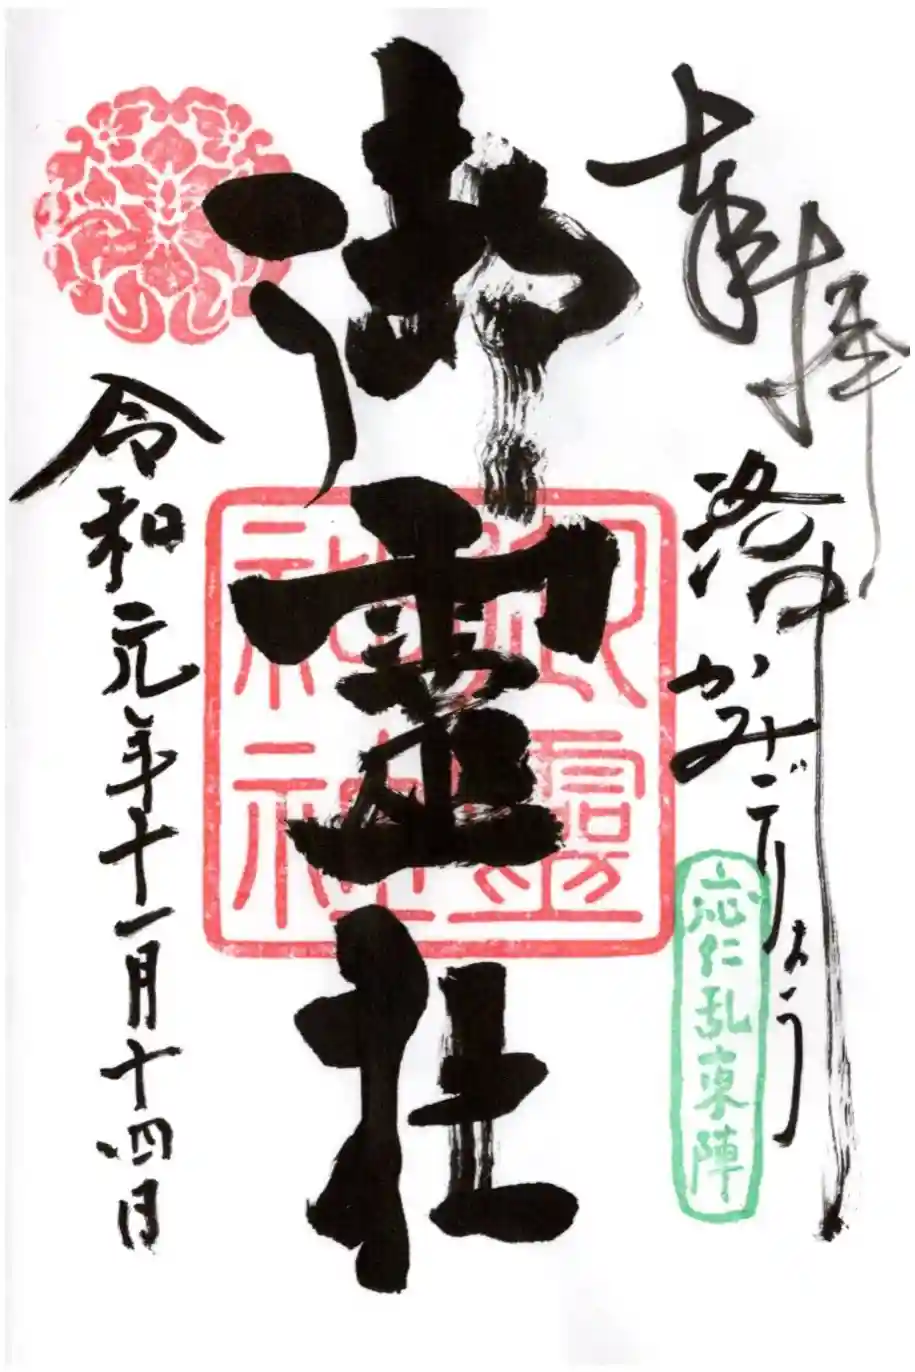 奉拝
洛中かみごりょう
応仁乱東陣
御霊社
御霊神社
令和元年十一月十四日